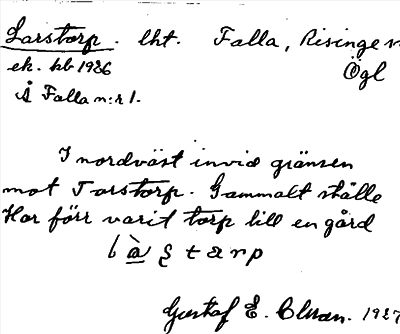 Larstorp. lht. Falla, Risinge sn
ek. kb 1926 Ögl
Å Falla n:r 1.
I nordväst invid gränsen
mot Torstorp. Gammalt ställe
Har förr varit torp till en gård
Gustaf E. Clman. 1927